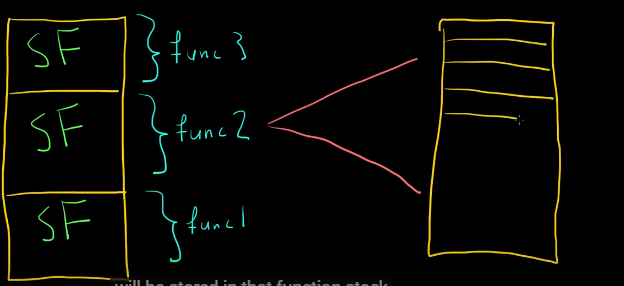 SF func 3
SF func 2
SF func 1
will be stored in that function stack